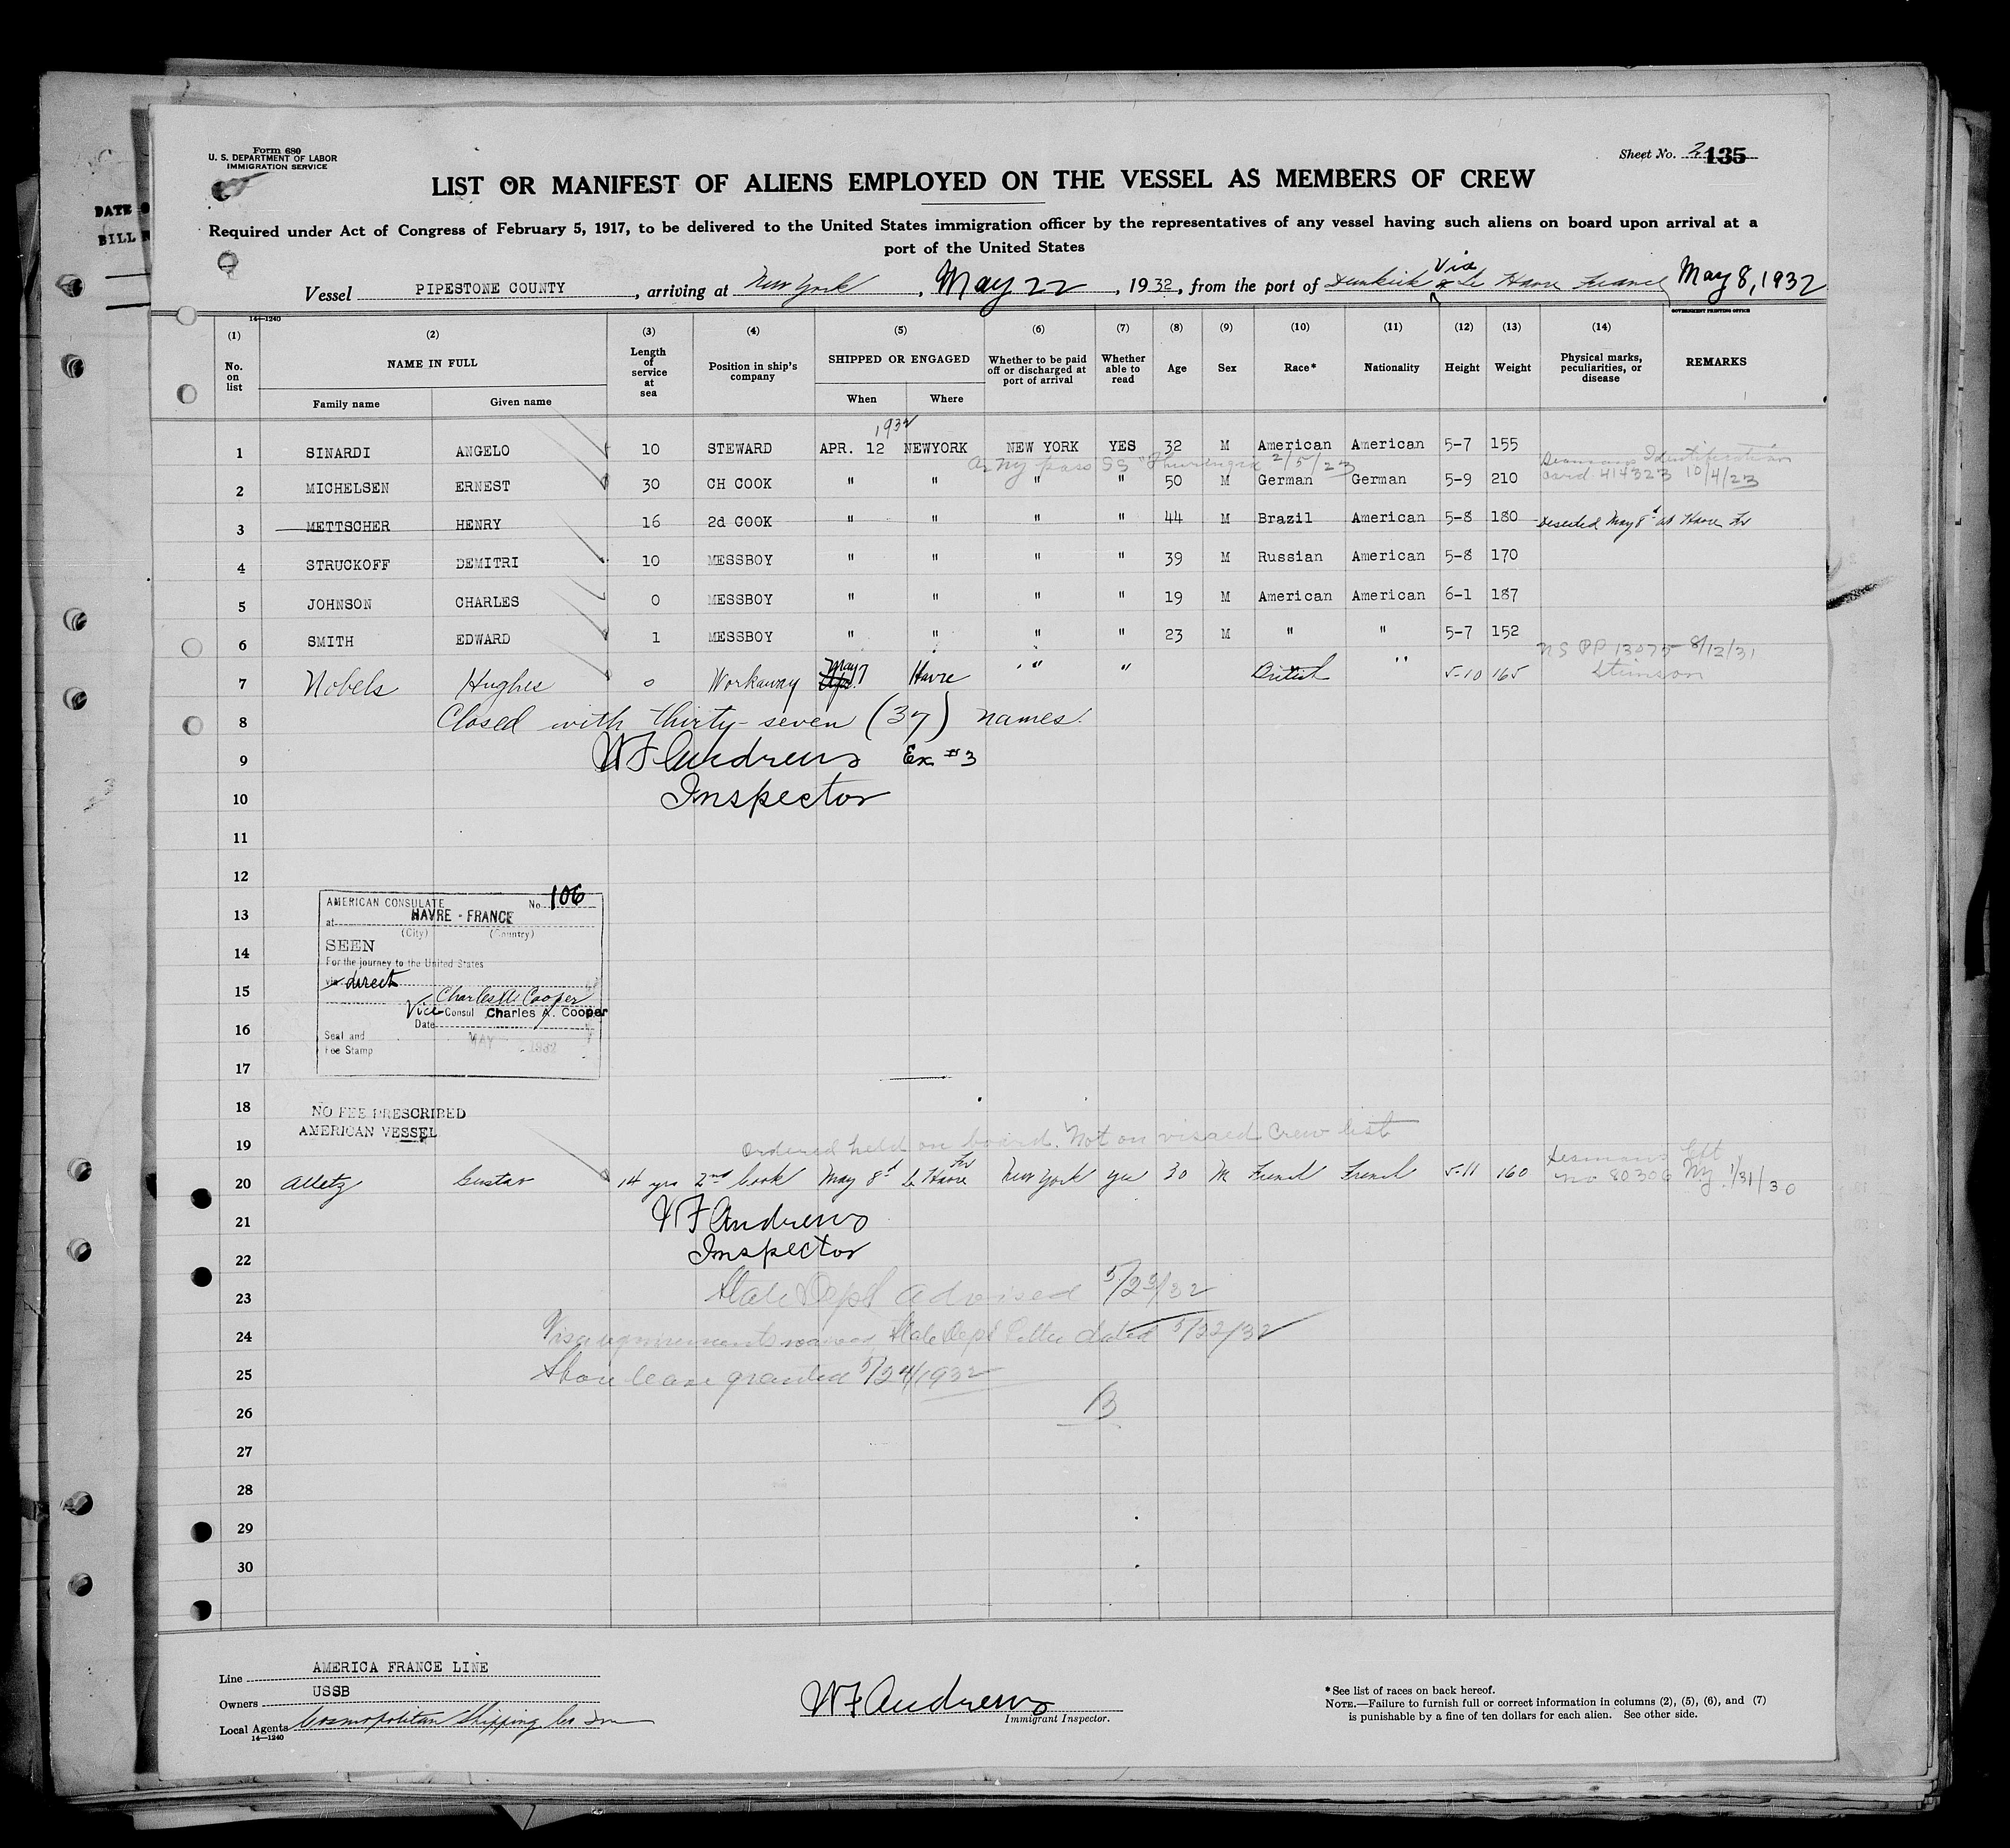 Form 680
U. S. DEPARTMENT OF LABOR
IMMIGRATION SERVICE
Sheet No. 2 135
DATE
BILL
LIST OR MANIFEST OF ALIENS EMPLOYED ON THE VESSEL AS MEMBERS OF CREW
Required under Act of Congress of February 5, 1917, to be delivered to the United States immigration officer by the representatives of any vessel having such aliens on board upon arrival at a
port of the United States
Vessel PIPESTONE COUNTY, arriving at New York, May 22, 1932, from the port of Dunkirk Via Le Havre France May 8, 1932
14—1240
GOVERNMENT PRINTING OFFICE
(1) (2) (3) (4) (5) (6) (7) (8) (9) (10) (11) (12) (13) (14)
No. on list NAME IN FULL Length of service at sea Position in ship's company SHIPPED OR ENGAGED Whether to be paid off or discharged at port of arrival Whether able to read Age Sex Race* Nationality Height Weight Physical marks, peculiarities, or disease REMARKS
Family name Given name When Where
1932
1 SINARDI ANGELO 10 STEWARD APR. 12 NEWYORK NEW YORK YES 32 M American American 5-7 155
Ar NY pass SS "Thuringia 2/5/23 Seamans Identification
2 MICHELSEN ERNEST 30 CH COOK " " " " 50 M German German 5-9 210 Card 414323 10/4/23
3 METTSCHER HENRY 16 2d COOK " " " " 44 M Brazil American 5-8 180 Deserted May 8th at Havre Fr
4 STRUCKOFF DEMITRI 10 MESSBOY " " " " 39 M Russian American 5-8 170
5 JOHNSON CHARLES 0 MESSBOY " " " " 19 M American American 6-1 187
6 SMITH EDWARD 1 MESSBOY " " " " 23 M " " 5-7 152
US PP 13075 8/12/31
7 Nobels Hughes 0 Workaway May 7 Havre " " British " 5-10 165 Stimson
8 Closed with thirty-seven (37) names.
9 W F Andrews Ex #3
10 Inspector
11
12
13
14
15
16
17
18
19
AMERICAN CONSULATE No. 106
at HAVRE - FRANCE
(City) (Country)
SEEN
For the journey to the United States
via direct
Charles A Cooper
Vice Consul Charles A. Cooper
Date
Seal and MAY 1932
Fee Stamp
NO FEE PRESCRIBED
AMERICAN VESSEL
Ordered held on board. Not on visaed Crew list
Seamans Cft
20 Alletz Gustav 14 yrs 2nd Cook May 8th Le Havre Fr New York yes 30 M French French 5-11 160 No 80306 N.Y. 1/31/30
21 W F Andrews
22 Inspector
23 State Dept advised 5/23/32
24 Visa requirements waived State Dept Letter dated 5/22/32
25 Shore leave granted 5/24/1932
26 B
27
28
29
30
Line AMERICA FRANCE LINE
Owners USSB
Local Agents Cosmopolitan Shipping Co Inc
14—1240
W F Andrews
Immigrant Inspector.
*See list of races on back hereof.
NOTE.—Failure to furnish full or correct information in columns (2), (5), (6), and (7)
is punishable by a fine of ten dollars for each alien. See other side.